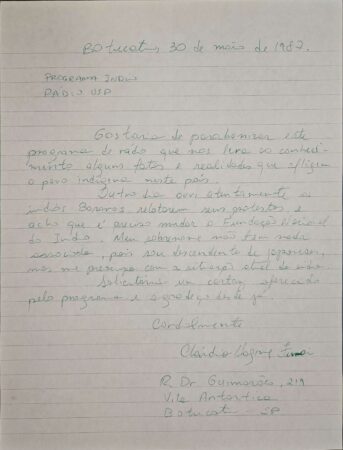 Botucatu, 30 de maio de 1987.
PROGRAMA INDIO
RADIO USP
Gostaria de parabenizar este
programa de radio que nos leva ao conheci-
mento alguns fatos e realidades que afligem
o povo indígena neste país.
Outro dia ouvi atentamente os
indios relatarem seus protestos e
acho que é preciso mudar a Fundação Nacional
do Indio. Meu sobrenome não tem nada
associado, pois sou descendente de japoneses,
mas me preocupo com a situação atual do indio.
Solicitaria um cartaz oferecido
pelo programa e agradeço desde já.
Cordialmente
Claudio Wagner
R. Dr. Guimarães, 219
Vila Antartica
Botucatu - SP